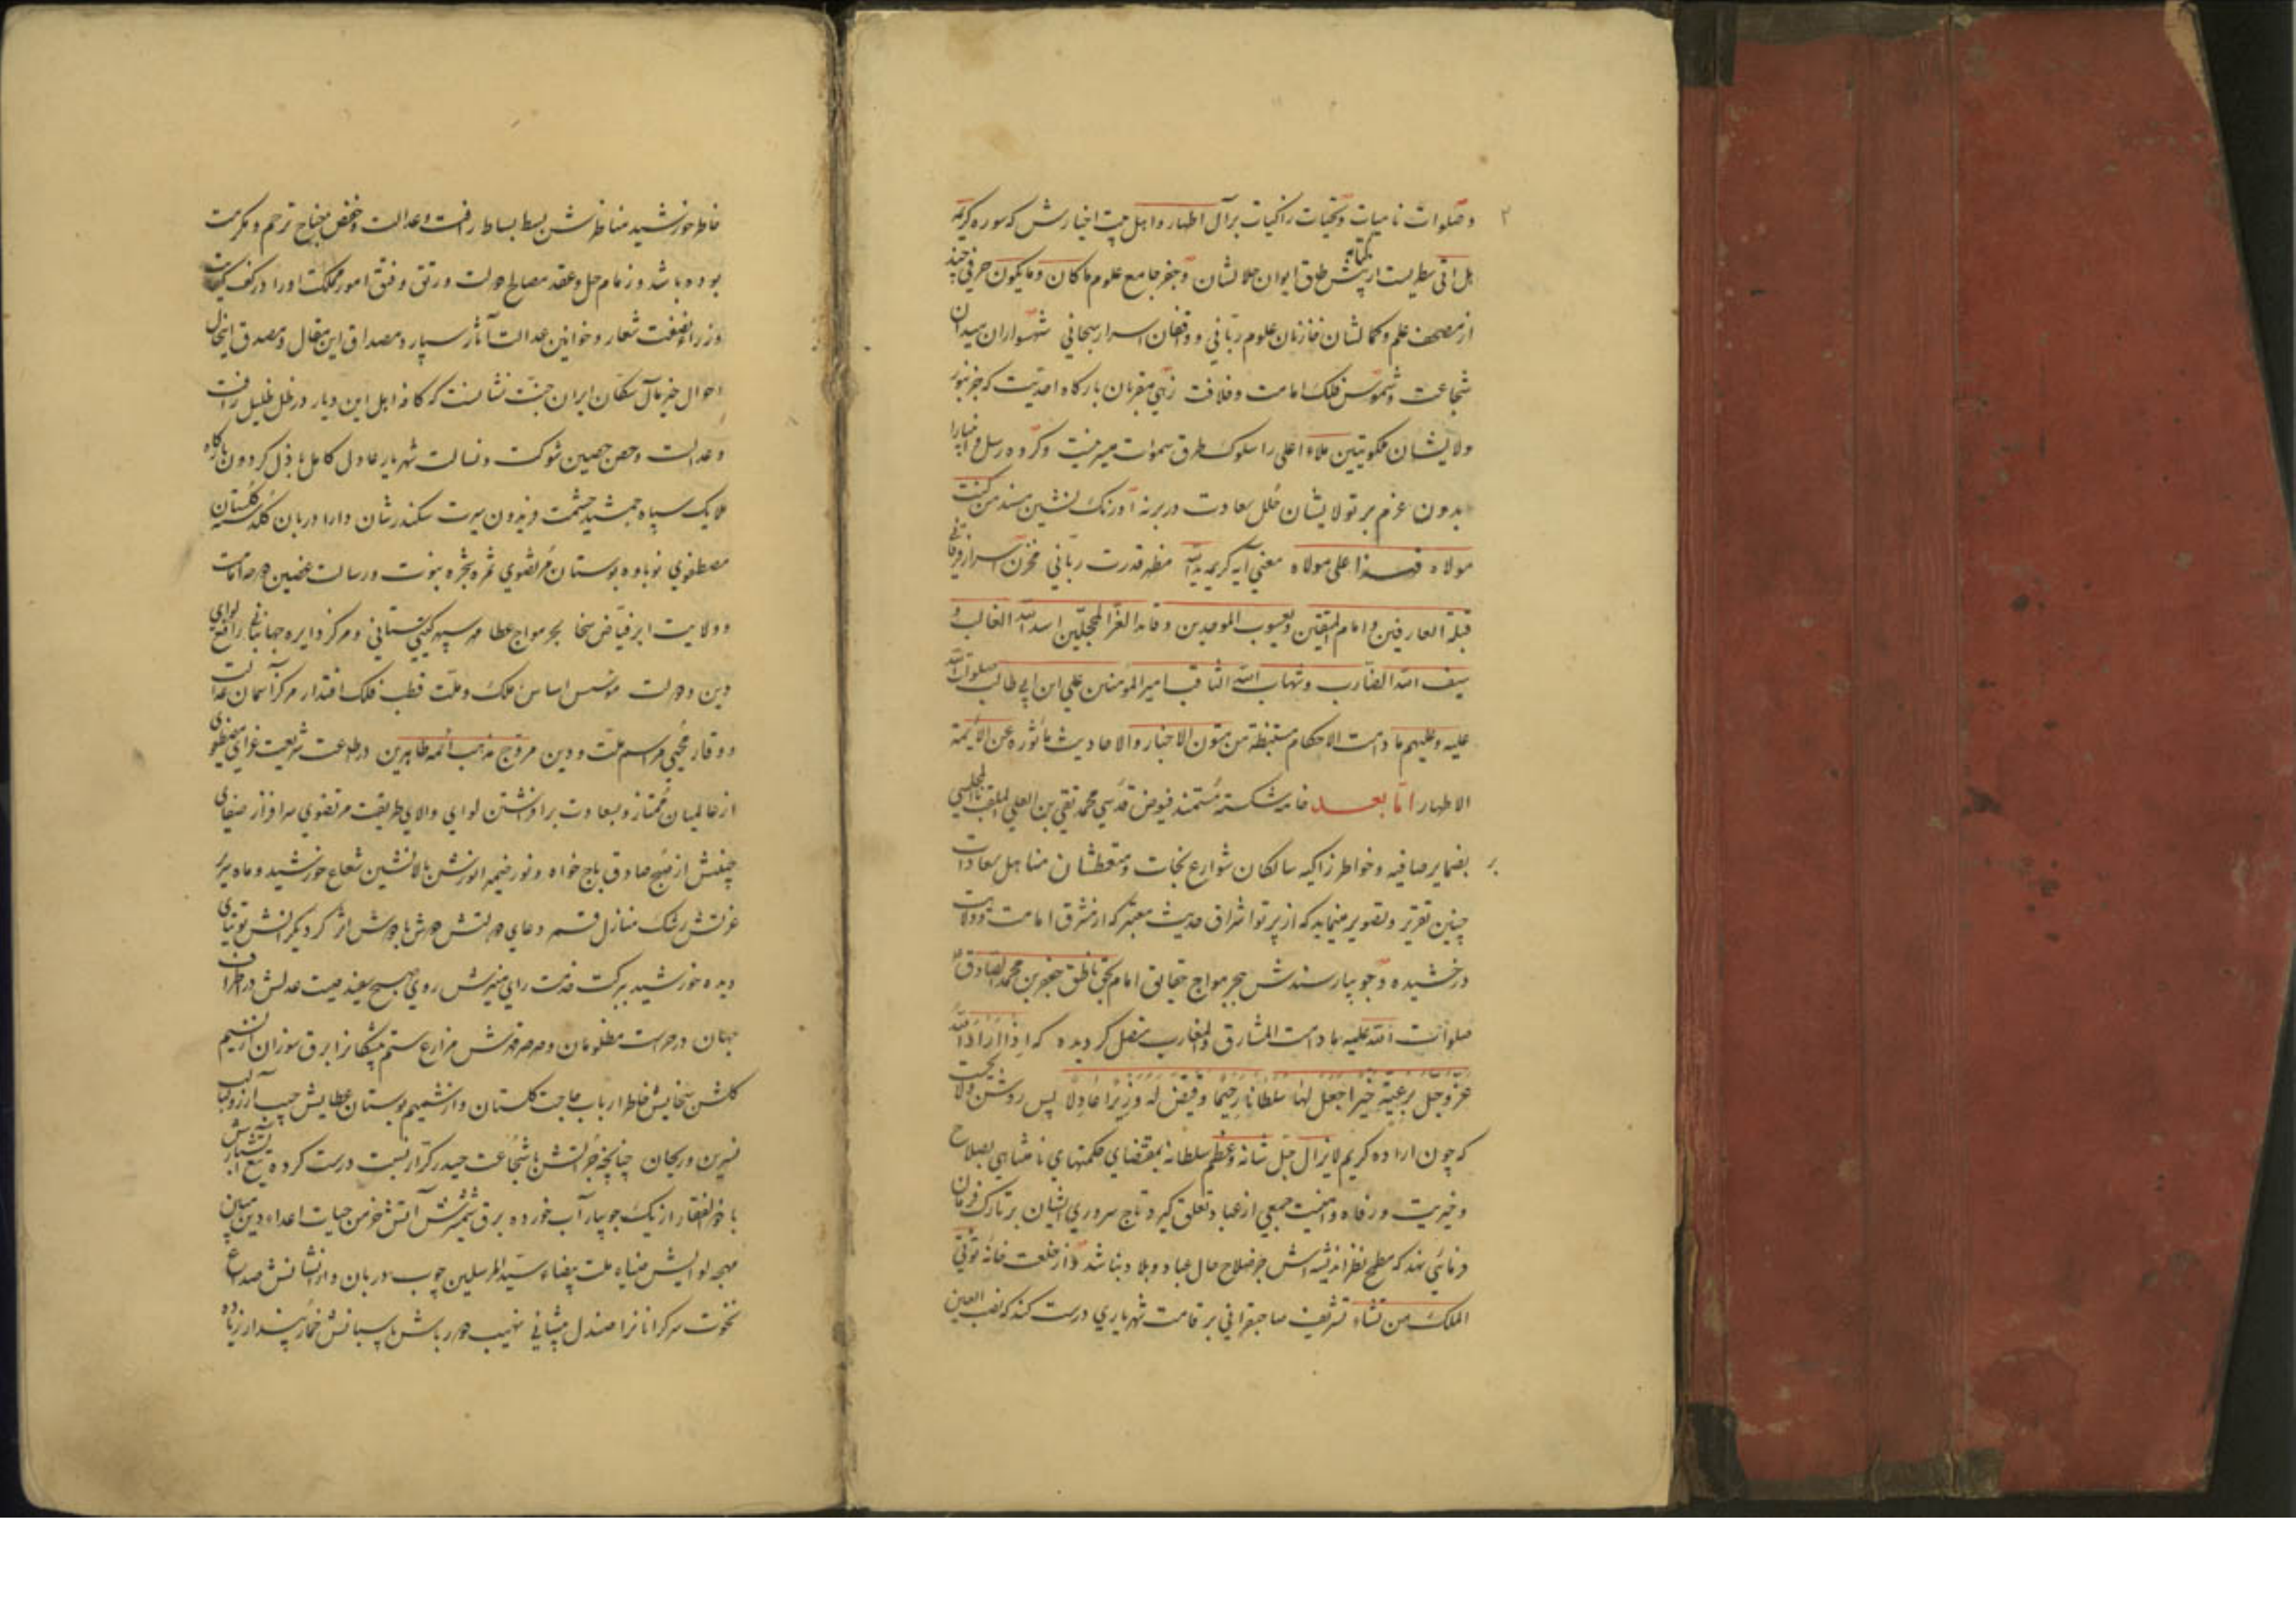 وصلوات نامیات وتحیات زاکیات برآل اطهار واهل بیت اخیارش که سوره کریمه
هل اتی سطریست از کتابه پیش طاق ایوان جلالشان وجفر جامع علوم ماکان ومایکون حرفی چند
از مصحف علم وکمالشان خازنان علوم ربانی و واقفان اسرار سبحانی شهسواران میدان
شجاعت وشموس فلک امامت وخلافت زهی مقربان بارکاه احدیت که جز بنور
ولایشان ملکوتیین ملاء اعلی را سلوک طرق سموات میسر نیست وکروه رسل وانبیا را
بدون عزم بر تولایشان حلل سعادت در بر نه اورنک نشین مسند من کنت
مولاه فهذا علی مولاه معنی آیه کریمه ید الله مظهر قدرت ربانی مخزن اسرار فرقانی
قبلة العارفین وامام المتقین ویعسوب الموحدین وقائد الغر المحجلین اسد الله الغالب و
سیف الله الضارب وشهاب الله الثاقب امیر المؤمنین علی ابن ابی طالب صلوات الله
علیه وعلیهم ما دامت الاحکام مستنبطة من متون الاخبار والاحادیث ماثوره عن الائمة
الاطهار اما بعد خامه شکسته مستمند فیوض قدسی محمد تقی بن العلی الملقب بالمجلسی
بضمایر صافیه وخواطر زاکیه سالکان شوارع نجات ومتعطشان مناهل سعادات
چنین تقریر وتصویر مینماید که از پرتو اشراق حدیث معتبر که از مشرق امامت وولایت
درخشیده وجویبار سندش ببحر مواج حقایق امام بحق ناطق جعفر بن محمد الصادق
صلوات الله علیه ما دامت المشارق والمغارب متصل کردیده که اذا اراد الله
عز وجل برعیة خیرا جعل لها سلطانا رحیما وقیض له وزیرا عادلا پس روشن ولایح است
که چون اراده کریم لایزال جل شانه وعظم سلطانه بمقتضای حکمتهای نامتناهی بصلاح
وخیریت ورفاه وامنیت جمعی از عباد تعلق کیرد تاج سروری ایشان بر تارک فرمان
فرمائی نهد که مطمح نظر اندیشه اش جز صلاح حال عباد وبلاد نباشد واز خلعت خانه توتی
الملک من تشاء تشریف صاحبقرانی بر قامت شهریاری درست کند که نصب العین
خاطر خورشید مناظرش بسط بساط رافت وعدالت وخفض جناح ترحم ومکرمت
بوده باشد وزمام حل وعقد مصالح دولت ورتق وفتق امور مملکت او را در کف کفایت
وزرا نصفت شعار وخوانین عدالت آثار سپارد ومصداق این مقال ومصدق اینحال
احوال خیر مآل سکان ایران جنت نشانست که کافه اهل این دیار در ظل ظلیل رافت
وعدالت وحصن حصین شوکت وبسالت شهریار عادل کامل باذل کردون بارکاه
ملایک سپاه جمشید حشمت فریدون سیرت سکندرشان دارا دربان کلدسته کلستان
مصطفوی نوباوه بوستان مرتضوی ثمره شجره نبوت ورسالت غصن دوحه امامت
وولایت ابر فیاض سخا بحر مواج عطا مهر سپهر کیتی ستانی ومرکز دایره جهانبانی رافع لوای
دین ودولت مؤسس اساس ملک وملت قطب فلک اقتدار مرکز آسمان عدالت
ووقار محیی مراسم ملت ودین مروج مذهب ائمه طاهرین در طاعت شریعت غرای مصطفوی
از عالمیان ممتاز وبسعادت برافراشتن لوای والای طریقت مرتضوی سرافراز صفای
از صبح صادق باج خواه ونور ضمیر انورش بالانشین شعاع خورشید وماه سریر
عزتش رشک منازل قمر دعای دولتش دوش بادوش اثر کرد توتیای
دیده خورشید ببرکت خدمت رای منیرش روی صبح سفید صیت عدلش در اطراف
جهان در حراست مظلومان وصرصر قهرش مزارع ستم پیشکانرا برق سوزان از نسیم
کلشن سخایش خاطر ارباب حاجت کلستان واز شمیم بوستان عطایش جیب آرزو لبالب
نسرین وریحان چنانچه جراتش با شجاعت حیدر کرار نسبت درست کرده تیغ آتشبارش
با ذوالفقار از یک جویبار آب خورده برق شمشیرش آتش خرمن حیات اعداء دین مبین
مهجه لوایش ضیاء ملت بیضاء سید المرسلین چوب دوربان وافشانش صداع
نخوت سرکرانانرا صندل پیشانی نهیب دورباش پاسبانش خمار پندار زیاده